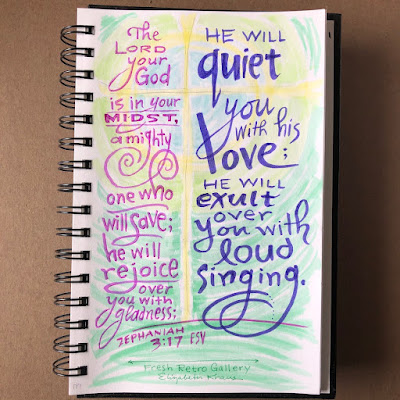 The
LORD
your
God
is in your
MIDST,
a mighty
one who
will save;
he will
rejoice
over
you with
gladness;
HE WILL
quiet
you
with his
love;
HE WILL
exult
over
you with
loud
singing.
ZEPHANIAH
3:17 ESV
Fresh Retro Gallery
Elizabeth Kraus